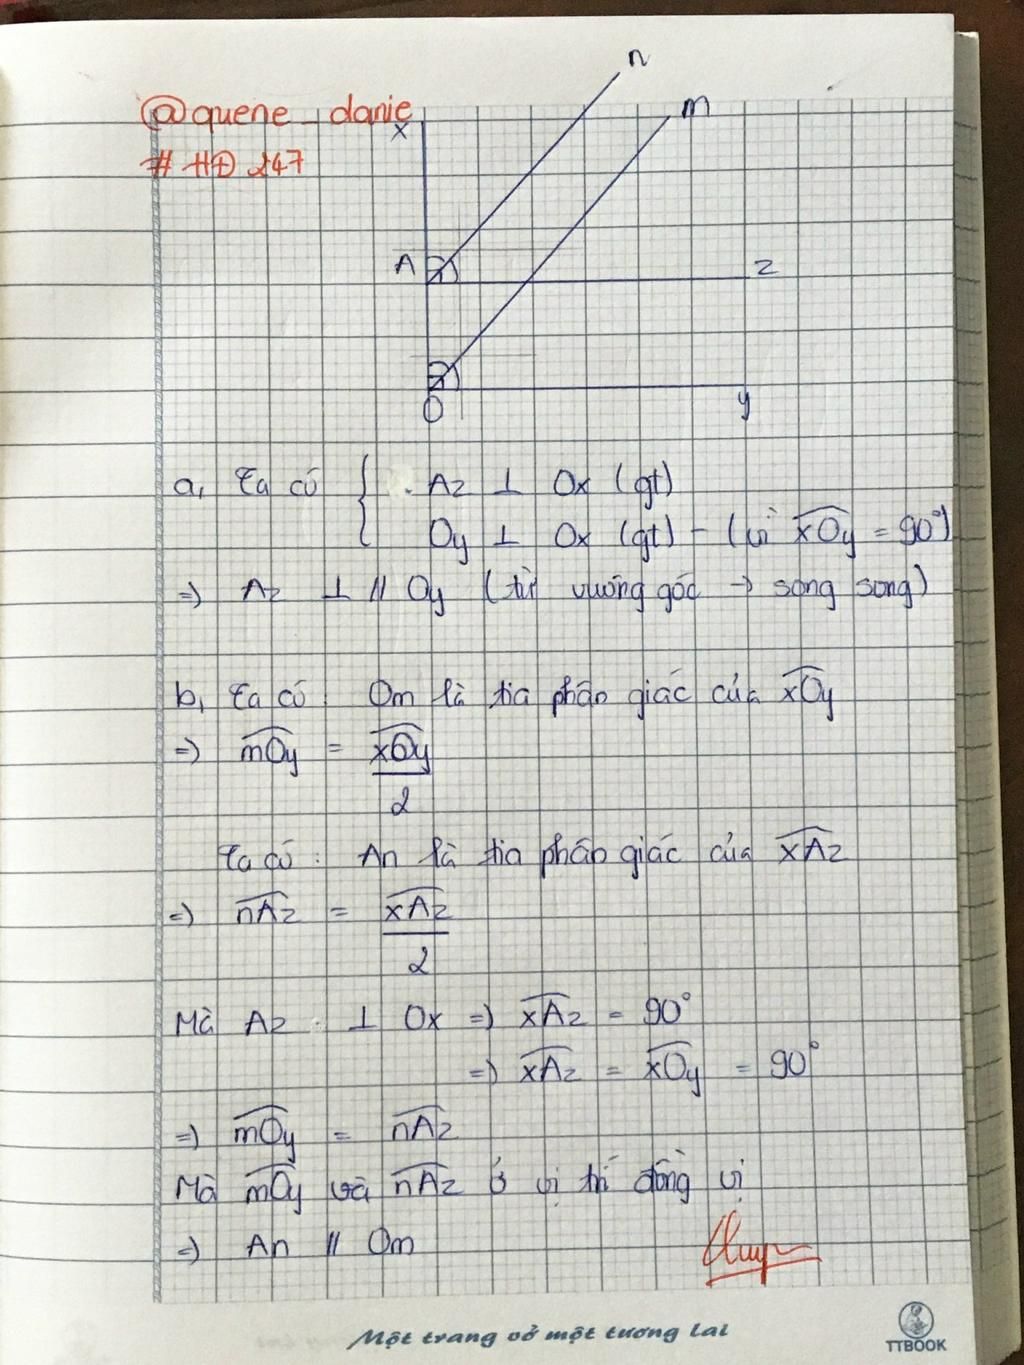 @quene_danie
# HĐ 247
n
m
x
A
z
O
y
a, Ta có { Az ⊥ Ox (gt)
Oy ⊥ Ox (gt) - (vì xOy = 90°)
=> Az ⊥ // Oy (từ vuông góc → song song)
b, Ta có: Om là tia phân giác của xOy
=> mOy = xOy
2
Ta có: An là tia phân giác của xAz
=> nAz = xAz
2
Mà Az ⊥ Ox => xAz = 90°
=> xAz = xOy = 90°
=> mOy = nAz
Mà mOy và nAz ở vị trí đồng vị
=> An // Om
Một trang vở một tương lai
TTBOOK